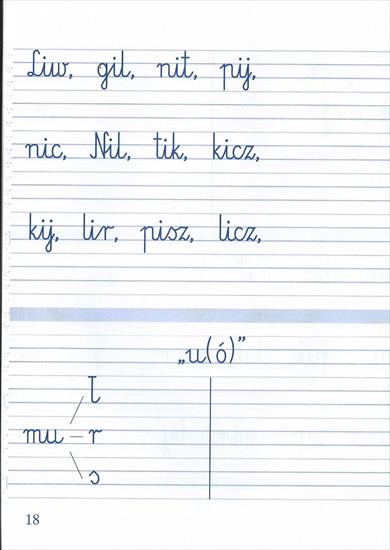 Liw, gil, nit, pij,
nic, Nil, tik, kicz,
kij, lir, pisz, licz,
„u(ó)”
ł
mu – r
s
18